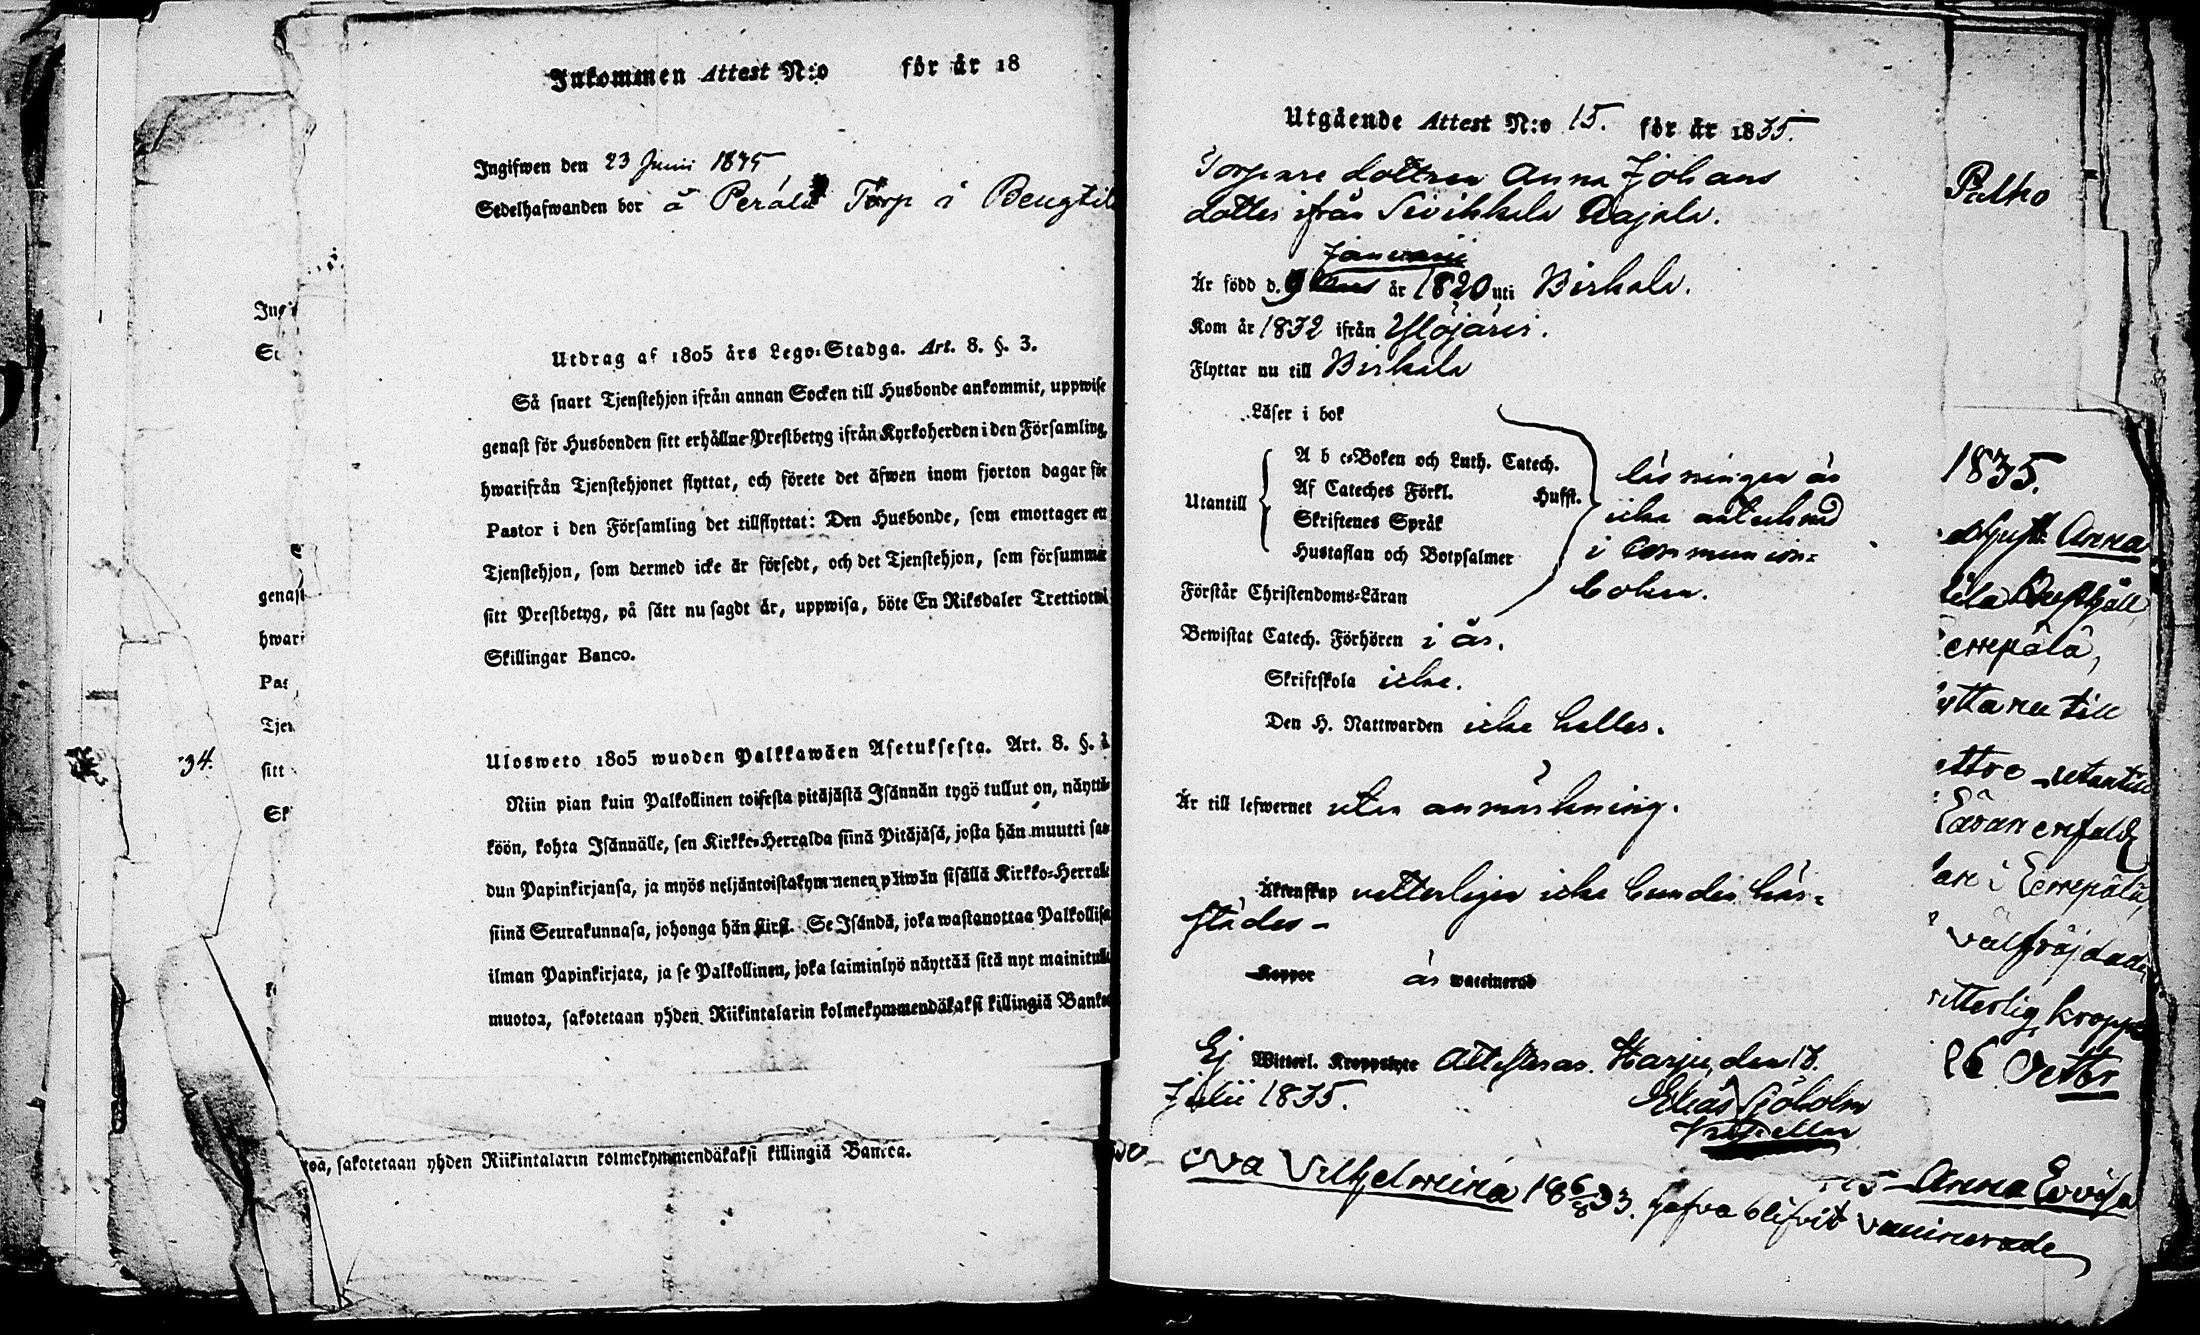 Inkommen Attest N:o för år 18
Ingifwen den 23 Junii 1835
Sedelhafwanden bor å Perälä Torp i Bengtil
Utdrag af 1805 års Lego-Stadga. Art. 8. §. 3.
Så snart Tjenstehjon ifrån annan Socken till Husbonde ankommit, uppwise
genast för Husbonden sitt erhållne Prestbetyg ifrån Kyrkoherden i den Församling,
hwarifrån Tjenstehjonet flyttat, och förete det äfwen inom fjorton dagar för
Pastor i den Församling det tillflyttat: Den Husbonde, som emottager ett
Tjenstehjon, som dermed icke är försedt, och det Tjenstehjon, som försummar
sitt Prestbetyg, på sätt nu sagdt är, uppwisa, böte En Riksdaler Trettiotwå
Skillingar Banco.
Ulosweto 1805 wuoden Palkkawäen Asetuksesta. Art. 8. §.
Niin pian kuin Palkollinen toisesta pitäjästä Isännän tygö tullut on, näyttä-
köön, kohta Isännälle, sen Kirkko-Herralda siinä Pitäjäsä, josta hän muutti saa-
dun Papinkirjansa, ja myös neljäntoistakymmenen päiwän sisällä Kirkko-Herralle
siinä Seurakunnasa, johonga hän siirsi. Se Isändä, joka wastanottaa Palkollisen
ilman Papinkirjata, ja se Palkollinen, joka laiminlyö näyttää sitä nyt mainitulla
muotoa, sakotetaan yhden Riikintalarin kolmekymmendäkaksi killingiä Bankos
oa, sakotetaan yhden Riikintalarin kolmekymmendäkaksi killingiä Bancca.
genast
hwari
Pas
Tjen
sitt
Sk
34.
Utgående Attest N:o 15. för år 1835.
Torpare dottren Anna Johans
dotter ifrån Sivikkala Rajala.
Januarii
Är född d. 9 år 1820 uti Birkala.
Kom år 1832 ifrån Ylöjärvi.
Flyttar nu till Birkala
Läser i bok
A b c-Boken och Luth. Catech.
Af Cateches Förkl. Hufst.
Utantill
Skriftenes Språk
Hustaflan och Botpsalmer
läsningen är
icke antecknad
i Communion-
boken.
Förstår Christendoms-Läran
Bewistat Catech. Förhören i år.
Skriftskola icke.
Den H. Nattwarden icke heller.
Är till lefwernet utan anmärkning.
Äktenskap vetterligen icke bunden här-
städes -
Koppor är waccinerad
Ej Witterl. Kroppslyte Attesteras. Harju, den 18.
Julii 1835.
Elias Sjöholm
Kapellan
Eva Vilhelmina 18 6/8 33. hafva blifvit vaccinerade
Anna Lovisa
Palho
1835.
Anna
yttar nu till
utantill
Läran enfaldig
välfräjdade
vitterlig kropps
26 Octbr